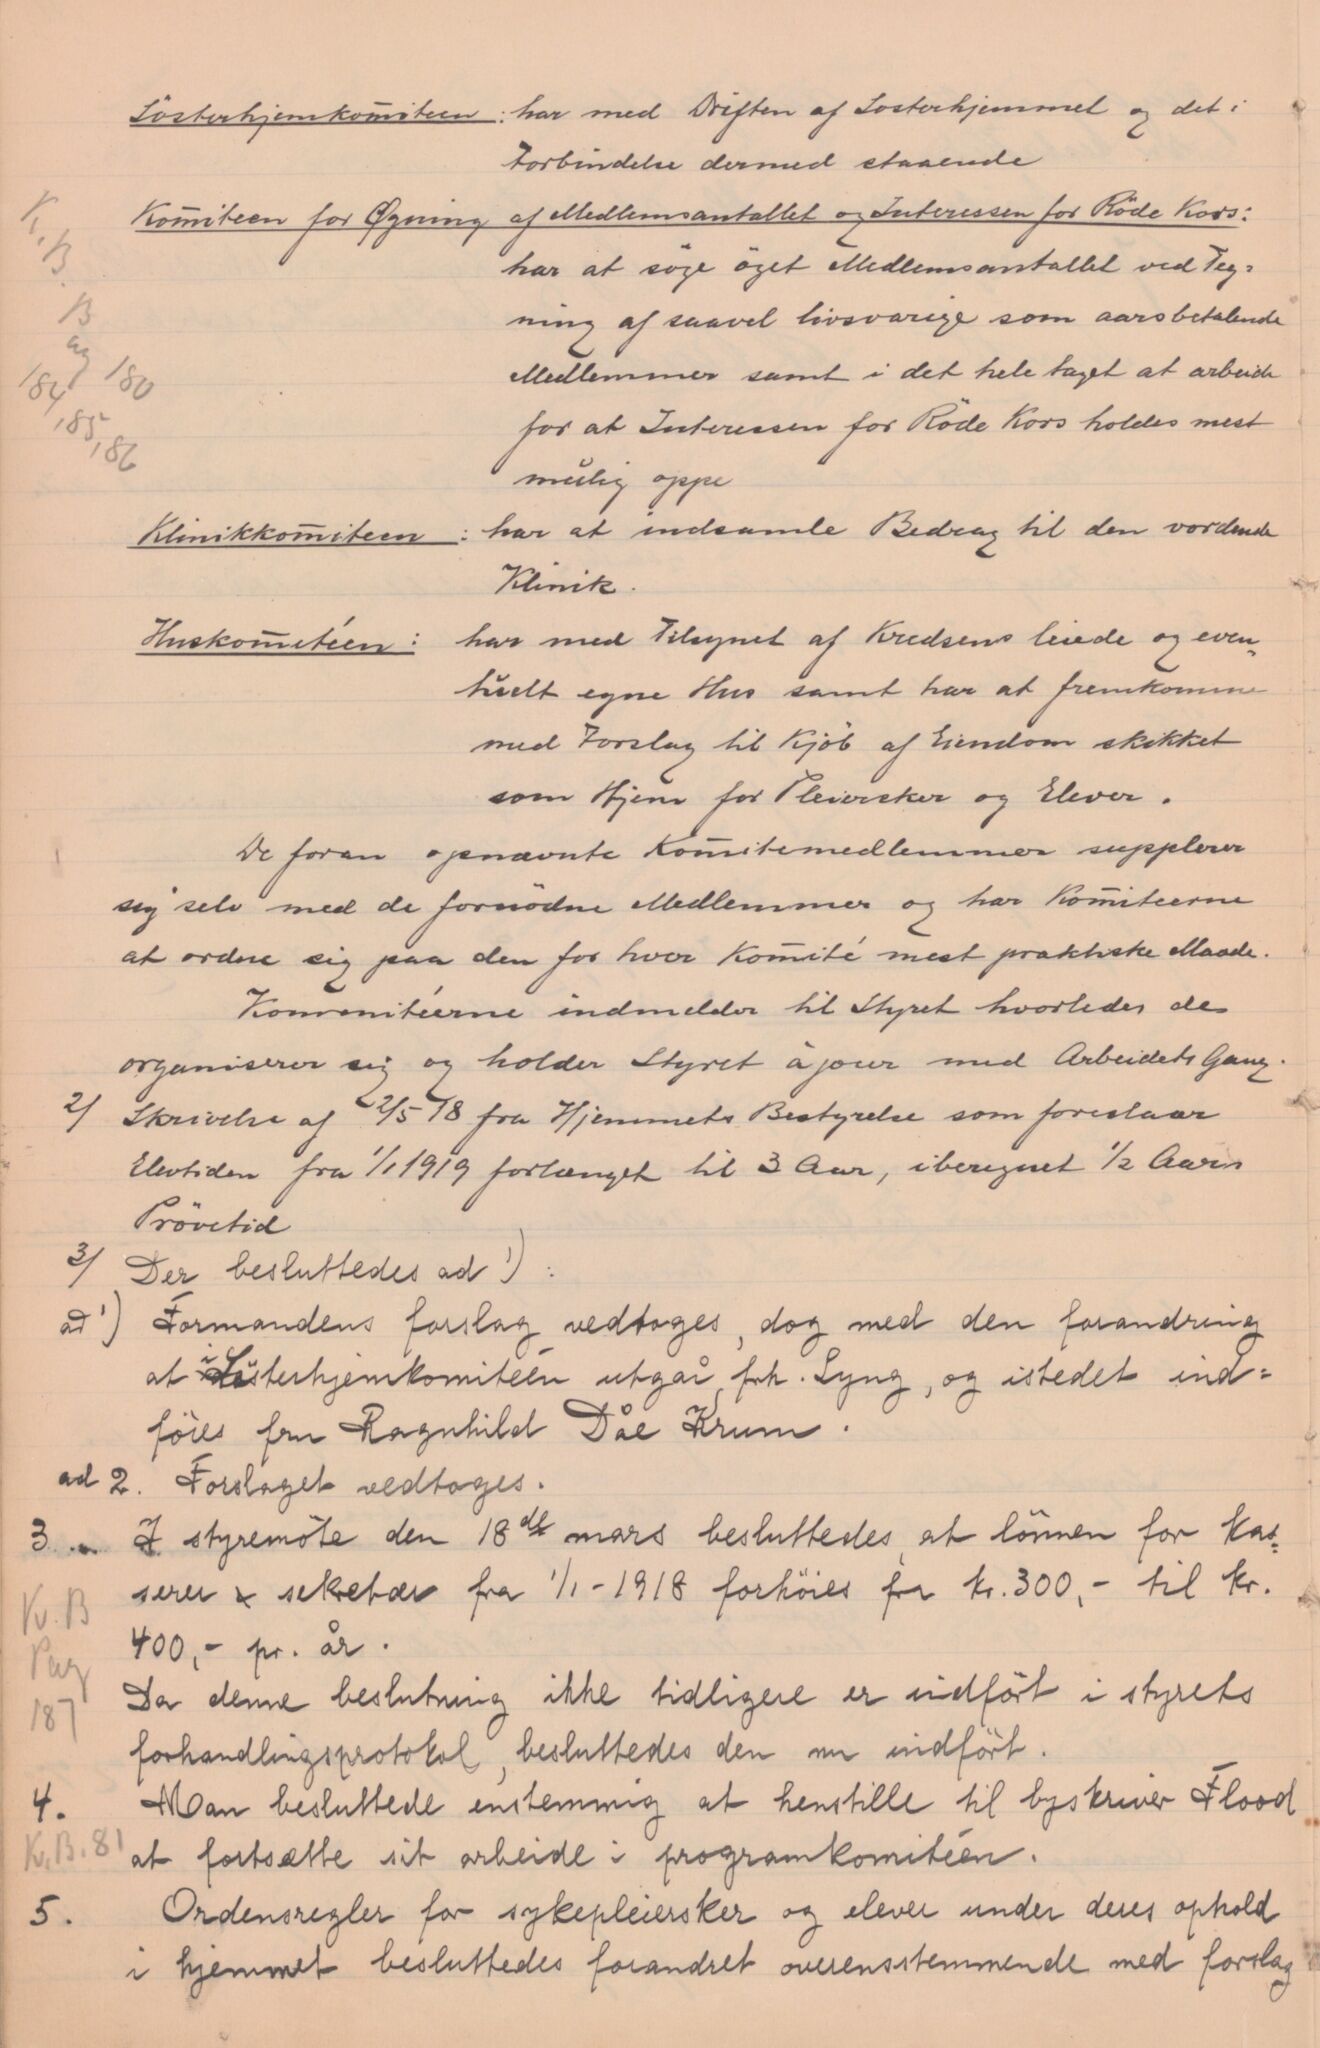 Søsterhjemkomiteen : har med Driften af Søsterhjemmet og det i
Forbindelse dermed staaende
Komiteen for Øgning af Medlemsantallet og Interessen for Röde Kors:
har at søge öget Medlemsantallet ved Teg=
ning af saavel livsvarige som aarsbetalende
Medlemmer samt i det hele taget at arbeide
for at Interessen for Röde Kors holdes mest
mulig oppe
K.B.
B
ag
184 180
185
186
Klinikkomiteen : har at indsamle Bedrag til den vordende
Klinik.
Huskomitéen : har med Tilsynet af Kredsens leiede og even„
tuelt egne Hus samt har at fremkomme
med Forslag til Kjöb af Eiendom skikket
som Hjem for Pleiersker og Elever.
De foran opnævnte Komitemedlemmer supplerer
sig selv med de fornödne Medlemmer og har Komiteerne
at ordne sig paa den for hver Komité mest praktiske Maade.
Kommitéerne indmelder til Styret hvorledes de
organiserer sig og holder Styret à jour med Arbeidets Gang.
2/ Skrivelse af 2/5 18 fra Hjemmets Bestyrelse som foreslaar
Elevtiden fra 1/1 1919 forlænget til 3 Aar, iberegnet 1/2 Aars
Prövetid
3/ Der besluttedes ad 1) :
ad 1) Formandens forslag vedtoges, dog med den forandring
at i Søsterhjemkomitéen utgår frk. Lyng, og istedet ind=
föies fru Ragnhild Dåe Krum.
ad 2. Forslaget vedtoges.
3. I styremöte den 18de mars besluttedes, at lönnen for kas=
serer & sekretær fra 1/1 - 1918 forhöies fra kr. 300,- til kr.
400,- pr. år.
Kv. B
Pag
187
Da denne beslutning ikke tidligere er indfört i styrets
forhandlingsprotokol, besluttedes den nu indfört.
4. Man besluttede enstemmig at henstille til byskriver Flood
Kv. B. 81 at fortsætte sit arbeide i programkomitéen.
5. Ordensregler for sykepleiersker og elever under deres ophold
i hjemmet besluttedes forandret overensstemmende med forslag